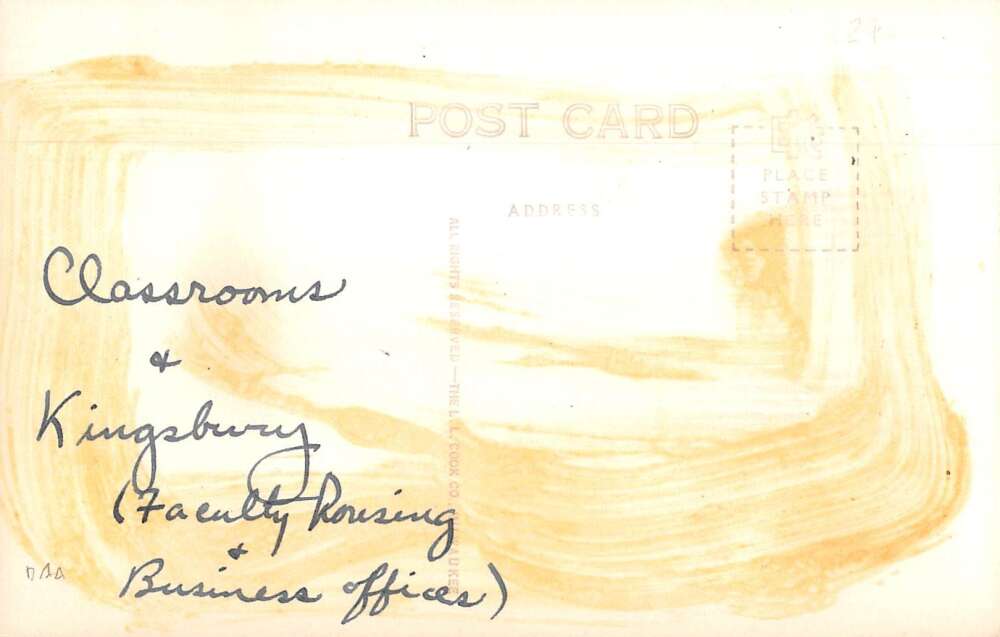 POST CARD
PLACE
STAMP
HERE
ADDRESS
ALL RIGHTS RESERVED—THE L. L. COOK CO., MILWAUKEE
Classrooms
&
Kingsbury
(Faculty housing
&
Business offices)